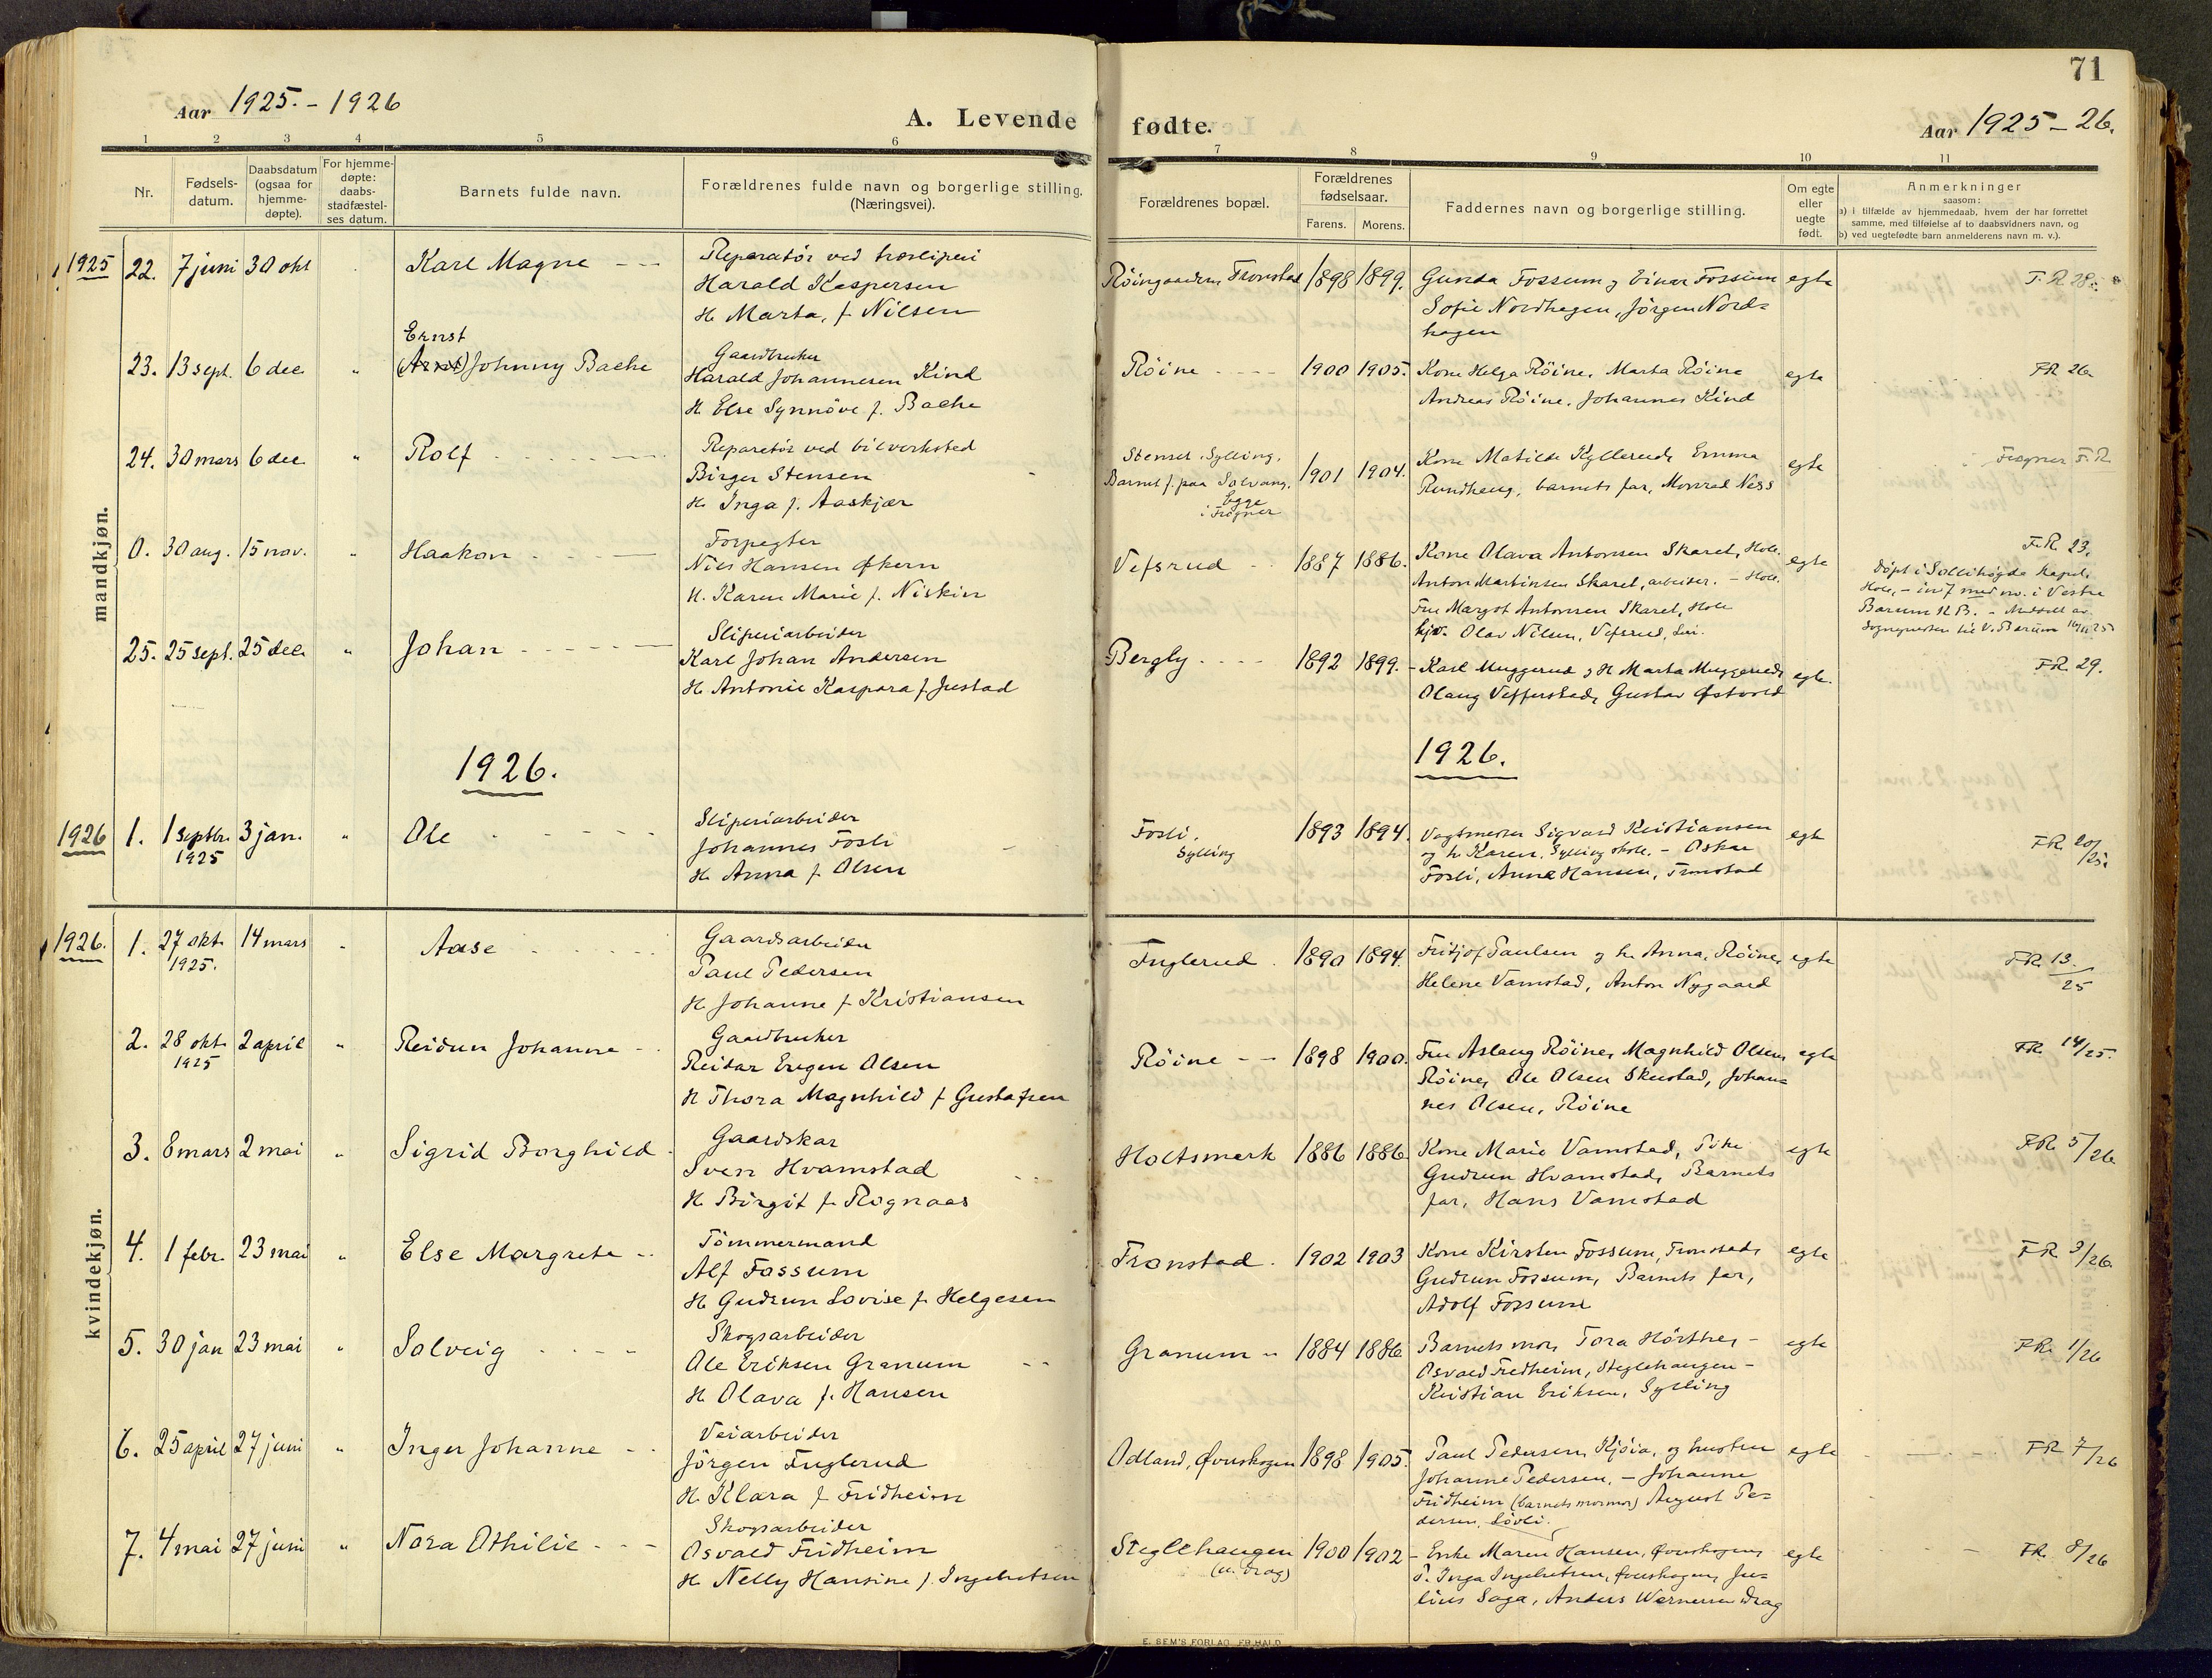 71
Aar 1925. - 1926
A. Levende fødte.
Aar 1925 - 26.
1 2 3 4 5 6 7 8 9 10 11
Nr.
Fødsels-
datum.
Daabsdatum
(ogsaa for
hjemme-
døpte).
For hjemme-
døpte:
daabs-
stadfæstel-
ses datum.
Barnets fulde navn.
Forældrenes fulde navn og borgerlige stilling.
(Næringsvei).
Forældrenes bopæl.
Forældrenes
fødselsaar.
Farens. Morens.
Faddernes navn og borgerlige stilling.
Om egte
eller
uegte
født.
Anmerkninger
saasom:
a) i tilfælde av hjemmedaab, hvem der har forrettet
samme, med tilføielse af to daabsvidners navn, og
b) ved uegtefødte barn anmelderens navn m. v.).
mandkjøn.
1925 22. 7 juni 30 okt Karl Magne
Reparatör ved træsliperi
Harald Kaspersen
H. Marta, f. Nilsen
Röingaarden Tronstad 1898 1899.
Gunda Fossum og Einar Fossum
Sofie Nordhagen, Jörgen Nord=
hagen
egte F.R. 28.
23. 13 sept. 6 dec. " Ernst
(Arnt) Johnny Bache
Gaardbruker
Harald Johannesen Kind
H. Else Synnöve f. Bache
Röine 1900 1905.
Kone Helga Röine, Marta Röine
Andreas Röine, Johannes Kind
egte FR 26.
24. 30 mars 6 dec. " Rolf
Reparatör ved bilverksted
Birger Stensen
H. Inga f. Aaskjær
Stenset, Sylling.
Barnet f. paa Solvang,
Egge
i Frogner
1901 1904.
Kone Matilde Kyllerud, Emma
Rundhaug, barnets far, Monrad Ness
egte Frogner F.R.
0. 30 aug. 15 nov. " Haakon
Forpagter
Nils Hansen Økern
H. Karen Marie f. Niskin
Vefsrud 1887 1886.
Kone Olava Antonsen Skaret, Hole.
Anton Martinsen Skaret, arbeider. - Hole.
Fru Margot Antonsen Skaret, Hole
Olav Nilsen, Vefsrud, Lier.
egte F.R. 23.
Döpt i Sollihögda kapel,
Hole, - innf. med no. i Vestre
Bærum K.B. - Meddelt av
sognepresten til V. Bærum
25. 25 sept. 25 dec. " Johan
Sliperiarbeider
Karl Johan Andersen
H. Antonie Kaspara f. Justad
Bergly 1892 1899.
Karl Muggerud og H. Marta Muggerud,
Olaug Vefferstad, Gustav Østvold
egte. FR. 29.
1926.
1926.
1926 1. 1 septbr. 1925 3 jan. " Ole
Sliperiarbeider
Johannes Fosli
H. Anna f. Olsen
Fosli,
Sylling
1893 1894.
Vegtmester Sigvard Kristiansen
og h. Karen, Sylling skole. - Oskar
Fosli, Anna Hansen, Tronstad
egte FR. 20/25.
kvindekjøn.
1926. 1. 27 okt. 1925. 14 mars " Aase
Gaardsarbeider
Paul Pedersen
H. Johanne f. Kristiansen
Fuglerud 1890 1894.
Fritjof Paulsen og h. Anna, Röine,
Helene Vamstad, Anton Nygaard
egte FR. 13/25
2. 28 okt. 1925 2 april " Reidun Johanne
Gaardbruker
Reidar Eugen Olsen
H. Thora Magnhild f. Gustafsen
Röine 1898 1900.
Fru Aslaug Röine, Magnhild Olsen,
Röine, Ole Olsen Skustad, Johan=
nes Olsen, Röine
egte FR. 14/25.
3. 8 mars 2 mai " Sigrid Borghild
Gaardskar
Sven Hvamstad
H. Birgit f. Rognaas
Holtsmark 1886 1886
Kone Marie Vamstad, Pike
Gudrun Hvamstad, Barnets
far, Hans Vamstad
egte FR. 5/26
4. 1 febr. 23 mai " Else Margrete
Tömmermand
Alf Fossum
H. Gudrun Lovise f. Helgesen
Tronstad 1902 1903
Kone Kirsten Fossum, Tronstad,
Gudrun Fossum, Barnets far,
Adolf Fossum
egte FR. 3/26
5. 30 jan 23 mai " Solveig
Skogsarbeider
Ole Eriksen Granum
H. Olava f. Hansen
Granum 1884 1886
Barnets mor, Tora Hörthe, -
Osvald Fridheim, Steglehaugen -
Kristian Eriksen, Sylling
egte FR. 1/26
6. 25 april 27 juni " Inger Johanne
Veiarbeider
Jörgen Fuglerud
H. Klara f. Fridheim
Odland, Øverskogen 1898 1905.
Paul Pedersen, Kjöia, og hustru
Johanne Pedersen, - Johanne
Fridheim (barnets mormor) August Pe=
dersen, Lövli.
egte FR. 7/26
7. 4 mai 27 juni " Nora Othilie
Skogsarbeider
Osvald Fridheim
H. Nelly Hansine f. Ingebretsen
Steglehaugen
(u. Drag)
1900 1902
Enke Maren Hansen, Øverskogen,
P. Inga Ingebretsen, Øverskogen, Ju=
lius Saga, Anders Wernersen Drag
egte FR. 8/26
E. SEM'S FORLAG, FR.HALD